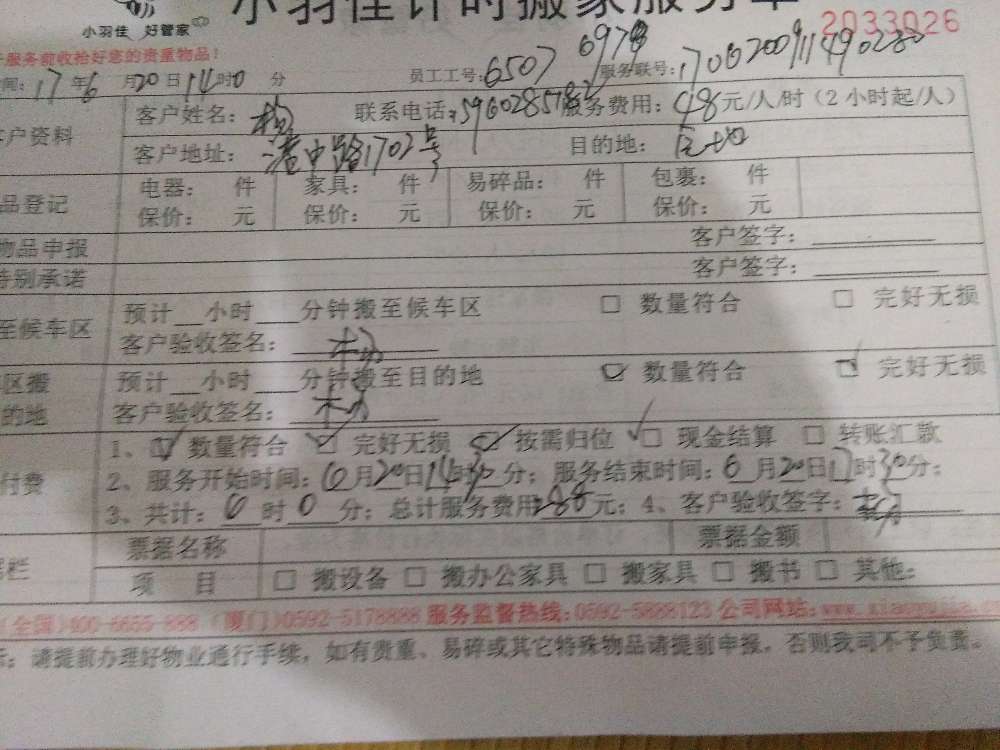 小羽佳计时搬家服务单
小羽佳 好管家
2033026
服务前收拾好您的贵重物品!
间: 17年6月20日14时0分 员工工号: 6507 6979 服务联号: 
客户资料 客户姓名: 杨 联系电话: 服务费用: 48元/人/时(2小时起/人)
客户地址: 港中路1702号 目的地:
品登记 电器: 件 家具: 件 易碎品: 件 包裹: 件
保价: 元 保价: 元 保价: 元 保价: 元
物品申报 客户签字:
特别承诺 客户签字:
至候车区 预计 小时 分钟搬至候车区 □ 数量符合 □ 完好无损
客户验收签名: 杨
区搬的地 预计 小时 分钟搬至目的地 ☑ 数量符合 ☑ 完好无损
客户验收签名: 杨
付费 1、☑ 数量符合 ☑ 完好无损 ☑ 按需归位 ☑ 现金结算 □ 转账汇款
2、服务开始时间: 6月20日14时30分; 服务结束时间: 6月20日17时30分;
3、共计: 6时0分; 总计服务费用288元; 4、客户验收签字: 杨
据栏 票据名称 票据金额
项 目 □ 搬设备 □ 搬办公家具 □ 搬家具 □ 搬书 □ 其他:
(全国)400-6655-888 (厦门)0592-5178888 服务监督热线:0592-5888123 公司网站:
示: 请提前办理好物业通行手续, 如有贵重、易碎或其它特殊物品请提前申报, 否则我司不予负责。